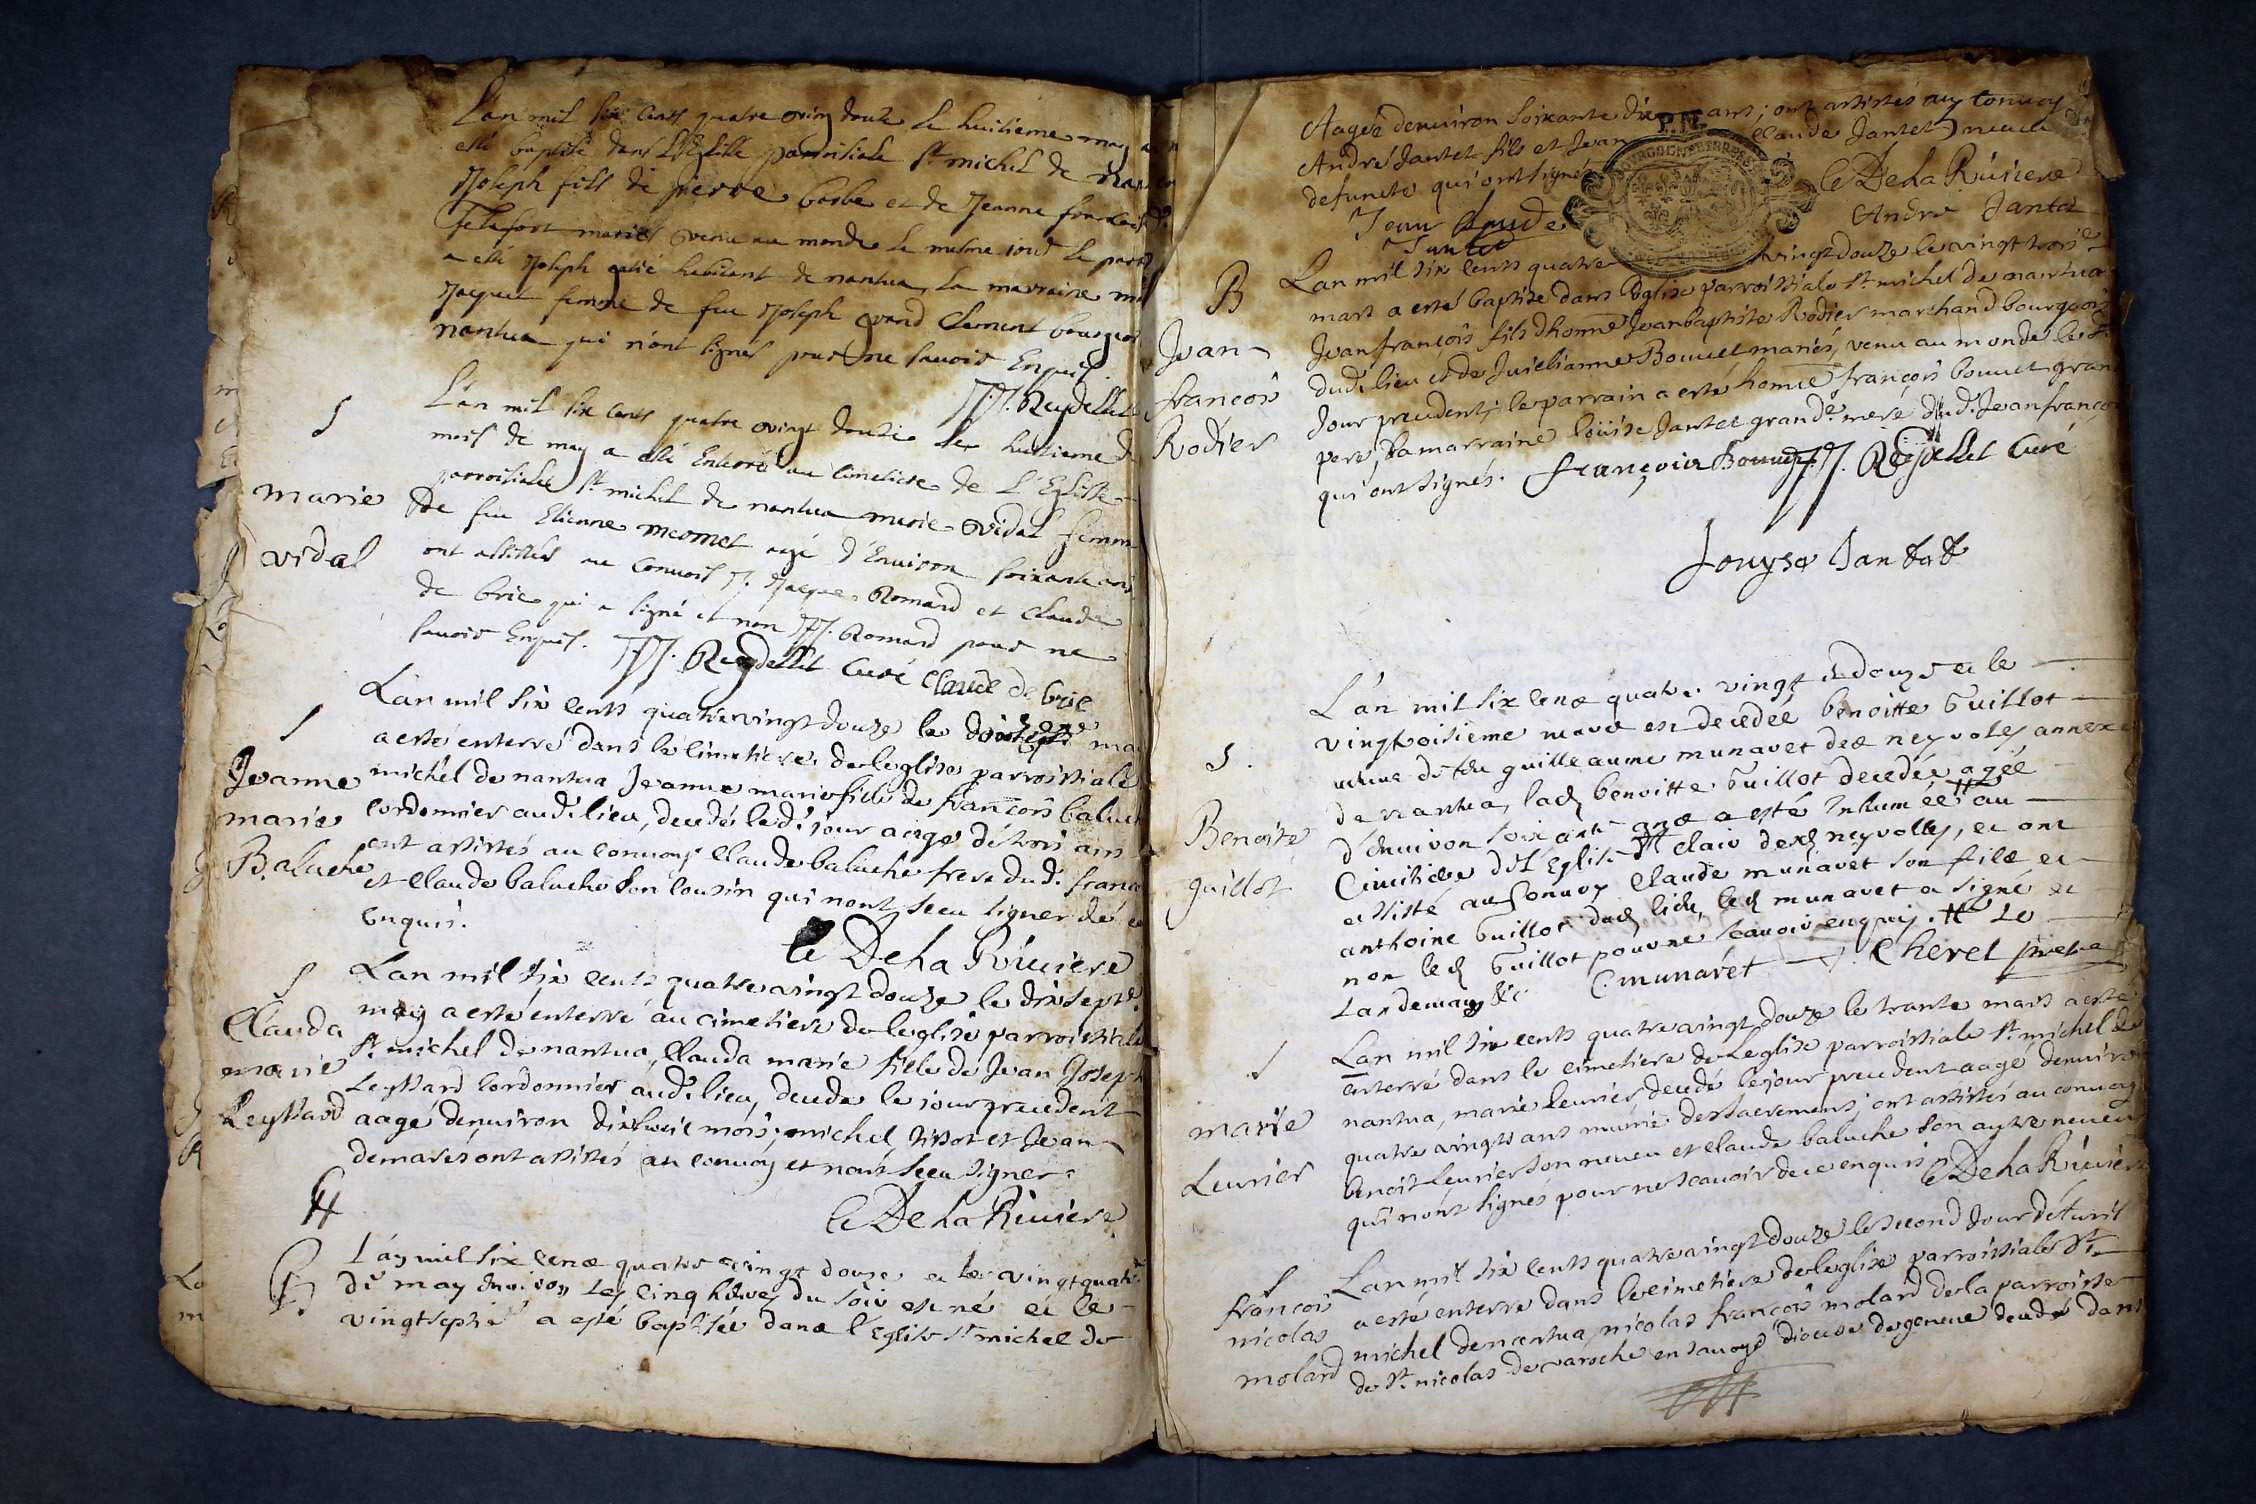 L'an mil six cents quatre vingt douze le huitieme may a
esté baptisé dans L'Eglise parroisiale St michel de nan
Joseph fils de pierre barbe et de Jeanne francoise
mariés venu au monde le mesme iour le par
a esté Joseph habitant de nantua, la marraine
Jacquet femme de feu Joseph grand Clement bourgeois
nantua qui n'ont signés pour ne savoir Enquis.
Reydellet
S
marie
vidal
L'an mil six cents quatre vingt douze le huitieme d
mois de may a esté Enterré au cimetiere de L'Eglise
parroisiale St michel de nantua marie vidal femm
de feu Etienne agé d'Environ soixante ans
ont assistés au Convois Jacque Romard et Claude
de brie qui a signé et non Romard pour ne
savoir Enquis. Reydellet Curé Claude de brie
S
Jeanne
marie
Baluche
Lan mil six cents quatrevingt douze le may
a esté enterré dans le cimetiere de leglise parroissiale
michel de nantua Jeanne marie fille de francois baluch
cordonnier aud. lieu, decedé led. jour aagé de trois ans
ont assistés au convoy Claude baluche frere dud. franc
et Claude baluche son cousin qui nont sceu signer de ce
enquis.
De La Riuiere
S
Clauda
marie
Leyssard
Lan mil six cents quatrevingt douze le dixsept.e
may a esté enterré au cimetiere de leglise parroissiale
St michel de nantua, Clauda marie fille de Jean Joseph
Leyssard cordonnier aud. lieu, decede le jour precedent
aagé denuiron dixhuit mois; michel tissot et Jean
demares ont assistés au convoy et nont sceu signer.
De La Riuiere
L'an mil six cens quatre vingt douze et le vingtquatr
de may enuiron les cinq heures du soir est né et le
vingtseptie a esté baptisée dans l'Eglise St michel de
Aageé denuiron soixante dix ans; ont assistés au convoy
André Jantet fils et Jean Claude Jantet neveu
defuncte qui ont signé
De La Riuiere
Jean Claude
Jantet
André Jantet
B
Jean
francois
Rodier
Lan mil six cents quatre vingt douze le vingt trois.e
mars a esté baptise dans leglise parroissiale St michel de nantua
Jean françois fils dhonn.e Jean baptiste Rodier marchand bourgeois
dud. lieu et de Bouuet mariés, venu au monde le
Jour precedent; le parrain a esté honn.e françois bouuet gran
pere, la marraine loüise Jantet grand.e mere dud. Jean franco
qui ont signés. françois Bouuet Reydellet Curé
Louyse Jantet
S.
Benoite
guillot
L'an mil six cens quatre vingt et douze et le
vingtroisieme mars est decedeé benoitte Guillot
veuue de feu guilleaume munavet des neyvoles annexe
de nantua, lad. benoitte Guillot decedée ageé
d'enuiron soixante ans a esté Inhumée au
Cimitiere de L'Eglise desd. neyvolles, et ont
assisté au Convoy Claude munavet son fils et
anthoine Guillot dud. lieu, led. munavet a signé et
non led. Guillot pour ne scavoir enquis. Le
Landemain C. munavet Cheret pretre
S
marie
Leurier
Lan mil six cents quatrevingt douze le trante mars a esté
enterré dans le cimetiere de Leglise parroissiale St michel de
nantua, marie leurier decedé le jour precedent aagé denuiron
quatre vingts ans munie des sacrements; ont assistés au convoy
benoit leurier son neueu et Claude baluche son autre neueu
qui n'ont signés pour ne scauoir de ce enquis. De La Riuiere
S
francois
nicolas
molard
Lan mil six cents quatrevingt douze le second jour d'Auril
a esté enterre dans le cimetiere de leglise parroissiale St
michel de nantua, nicolas francois molard de la parroisse
de St nicolas de varoche en sauoye diocese de geneue decedé dans